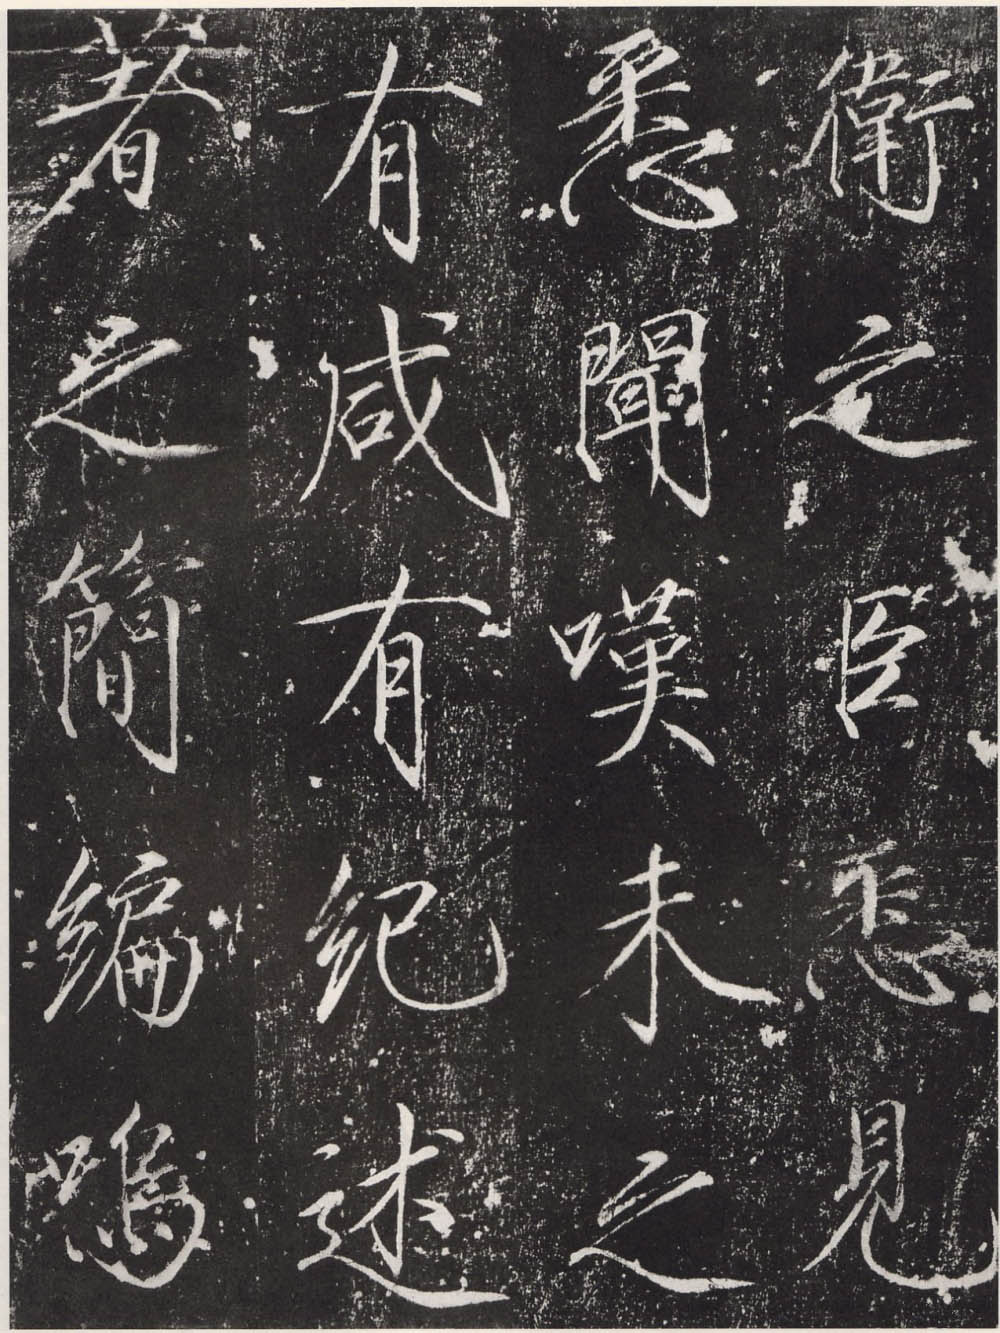 衛之臣悉見
悉聞嘆未之
有咸有紀述
著之簡編嗚